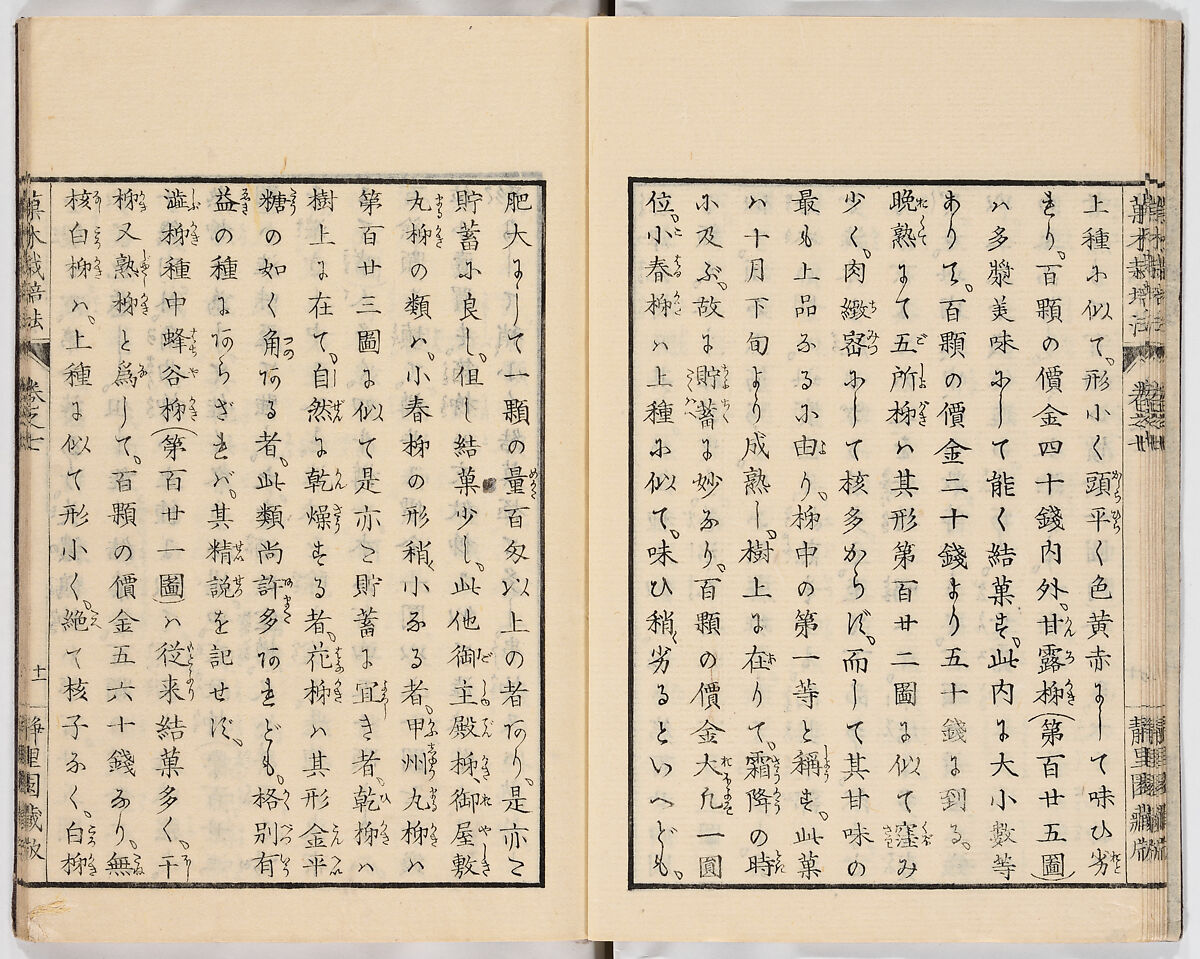 上種ニ似て、形小く頭平く色黄赤にして味ひ劣
れり、百顆の價金四十錢内外、甘露柿(第百廿五圖)
ハ多漿美味にして能く結菓す、此内に大小數等
ありて、百顆の價金二十錢より五十錢に到る、
晩熟にて五所柿ハ其形第百廿二圖に似て窪み
少く、肉緻密にして核多からず、而して其甘味の
最も上品なるに由り、柿中の第一等と稱す、此菓
ハ十月下旬より成熟し、樹上に在りて、霜降の時
に及ぶ、故に貯蓄に妙なり、百顆の價金大凡一圓
位、小春柿ハ上種に似て、味ひ稍〻劣るといへども、
肥大にして一顆の量百匁以上の者あり、是亦こ
貯蓄に良し、但し結菓少し、此他御主殿柿、御屋敷
丸柿の類ハ、小春柿の形稍〻小なる者、甲州丸柿ハ
第百廿三圖に似て是亦こ貯蓄に宜き者、乾柿ハ
樹上に在て、自然に乾燥する者、花柿ハ其形金平
糖の如く角ある者、此類尚許多あれども、格別有
益の種にあらざれバ、其精説を記せず、
澁柿種中蜂谷柿(第百廿一圖)ハ従来結菓多く、干
柿又熟柿と爲して、百顆の價金五六十錢なり、無
核白柿ハ、上種に似て形小く、絶て核子なく、白柿
菓木栽培法
卷之七
十一
静里園藏版